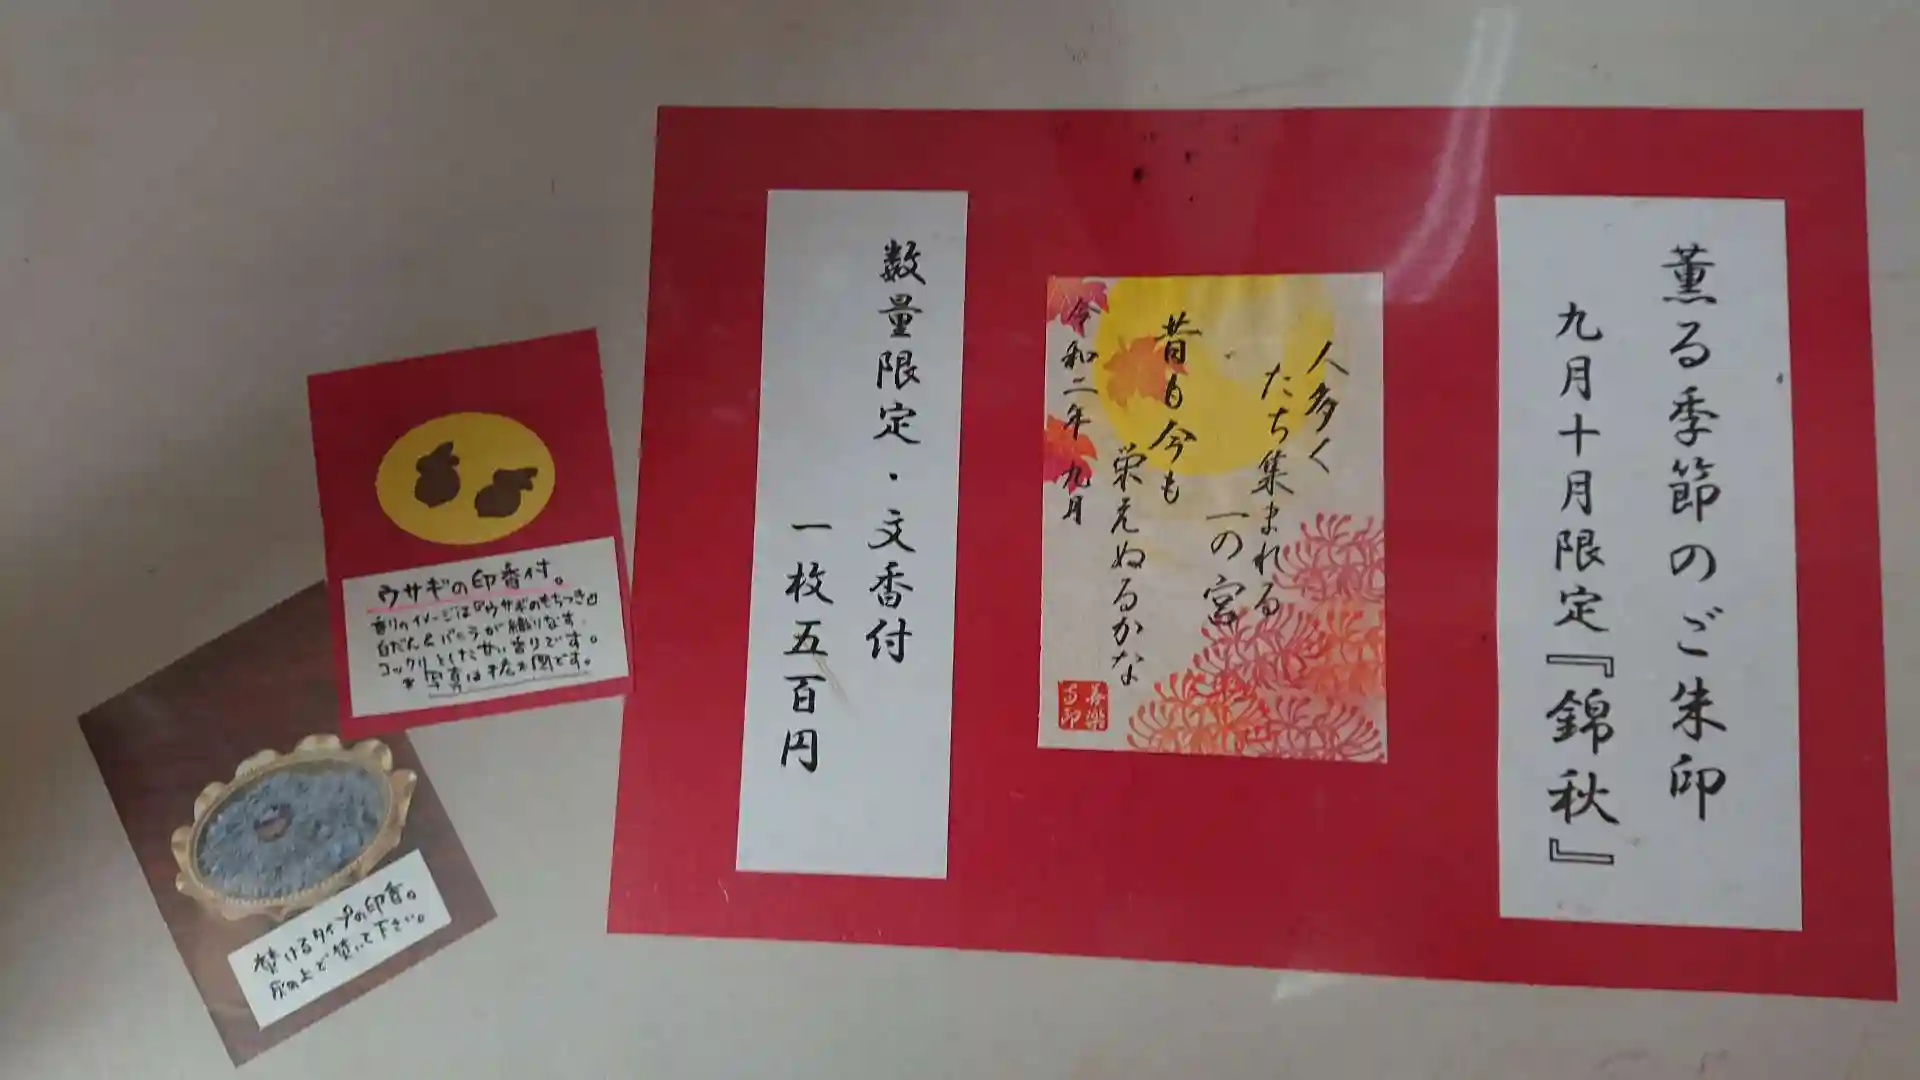 薫る季節のご朱印
九月十月限定『錦秋』
人多く
たち集まれる
一の宮
昔も今も
栄えぬるかな
令和二年 九月
数量限定・文香付
一枚五百円
ウサギの印香付。
香りのイメージは『ウサギのもちつき』
白だん&バニラが織りなす
コックリとした甘い香りです。
*写真は拡大図です。
焚けるタイプの印香。
灰の上で焚いて下さい。